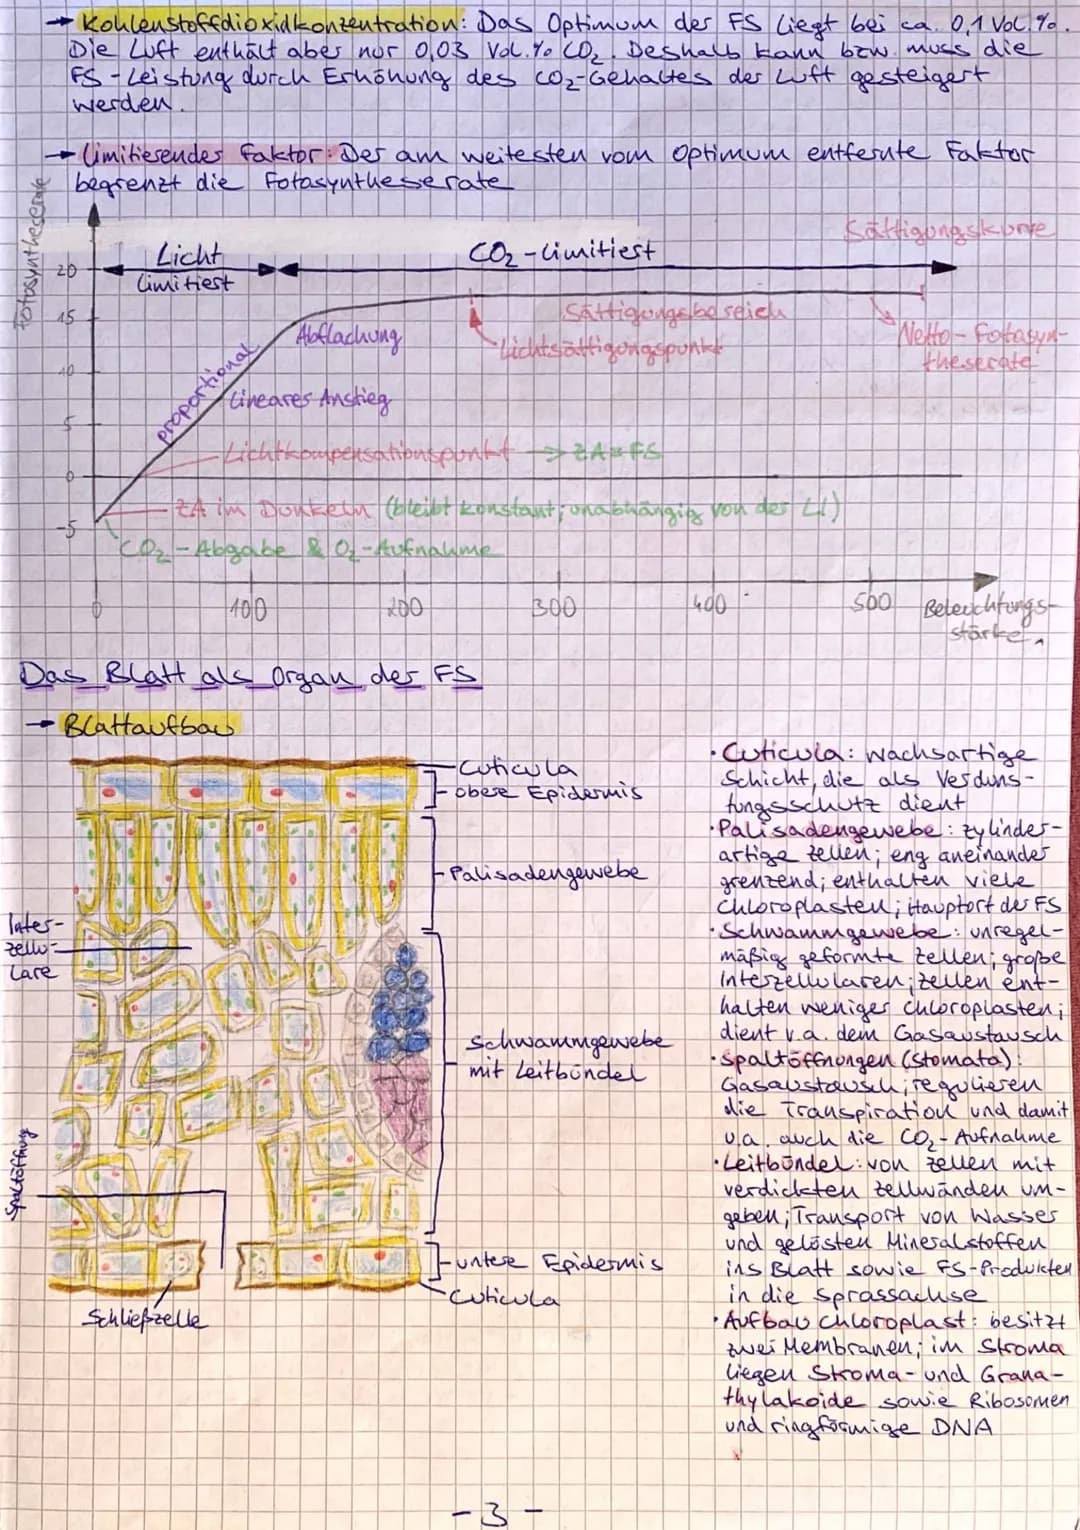 → Kohlenstoffdioxidkonzentration: Das Optimum der FS liegt bei ca. 0,1 Vol.%.
Die Luft enthält aber nur 0,03 Vol.% CO₂. Deshalb kann bzw. muss die
FS-Leistung durch Erhöhung des CO₂-Gehaltes der Luft gesteigert
werden.
→ Limitierender Faktor: Der am weitesten vom Optimum entfernte Faktor
begrenzt die Fotosyntheserate
Fotosyntheserate
Sättigungskurve
Licht
limitiert
CO₂-limitiert
20
15
10
5
0
-5
Abflachung
Sättigungsbereich
Lichtsättigungspunkt
Netto-Fotosyn-
theserate
proportional
Lineares Anstieg
Lichtkompensationspunkt → ZA=FS
ZA im Dunkeln (bleibt konstant; unabhängig von der LI)
CO₂-Abgabe & O₂-Aufnahme
0 100 200 300 400 500
Beleuchtungs-
stärke
Das Blatt als Organ der FS
→ Blattaufbau
Cuticula
obere Epidermis
Palisadengewebe
Inter-
zellu-
lare
Schwammgewebe
mit Leitbündel
Spaltöffnung
untere Epidermis
Cuticula
Schließzelle
· Cuticula: wachsartige
Schicht, die als Verduns-
tungsschutz dient
· Palisadengewebe: zylinder-
artige Zellen; eng aneinander
grenzend; enthalten viele
Chloroplasten; Hauptort der FS
· Schwammgewebe: unregel-
mäßig geformte Zellen; große
Interzellularen; Zellen ent-
halten weniger Chloroplasten;
dient v.a. dem Gasaustausch
· Spaltöffnungen (Stomata):
Gasaustausch; regulieren
die Transpiration und damit
u.a. auch die CO₂-Aufnahme
· Leitbündel: von Zellen mit
verdickten Zellwänden um-
geben; Transport von Wasser
und gelösten Mineralstoffen
ins Blatt sowie FS-Produkten
in die Sprossachse
· Aufbau Chloroplast: besitzt
zwei Membranen; im Stroma
liegen Stroma- und Grana-
thylakoide sowie Ribosomen
und ringförmige DNA
- 3 -